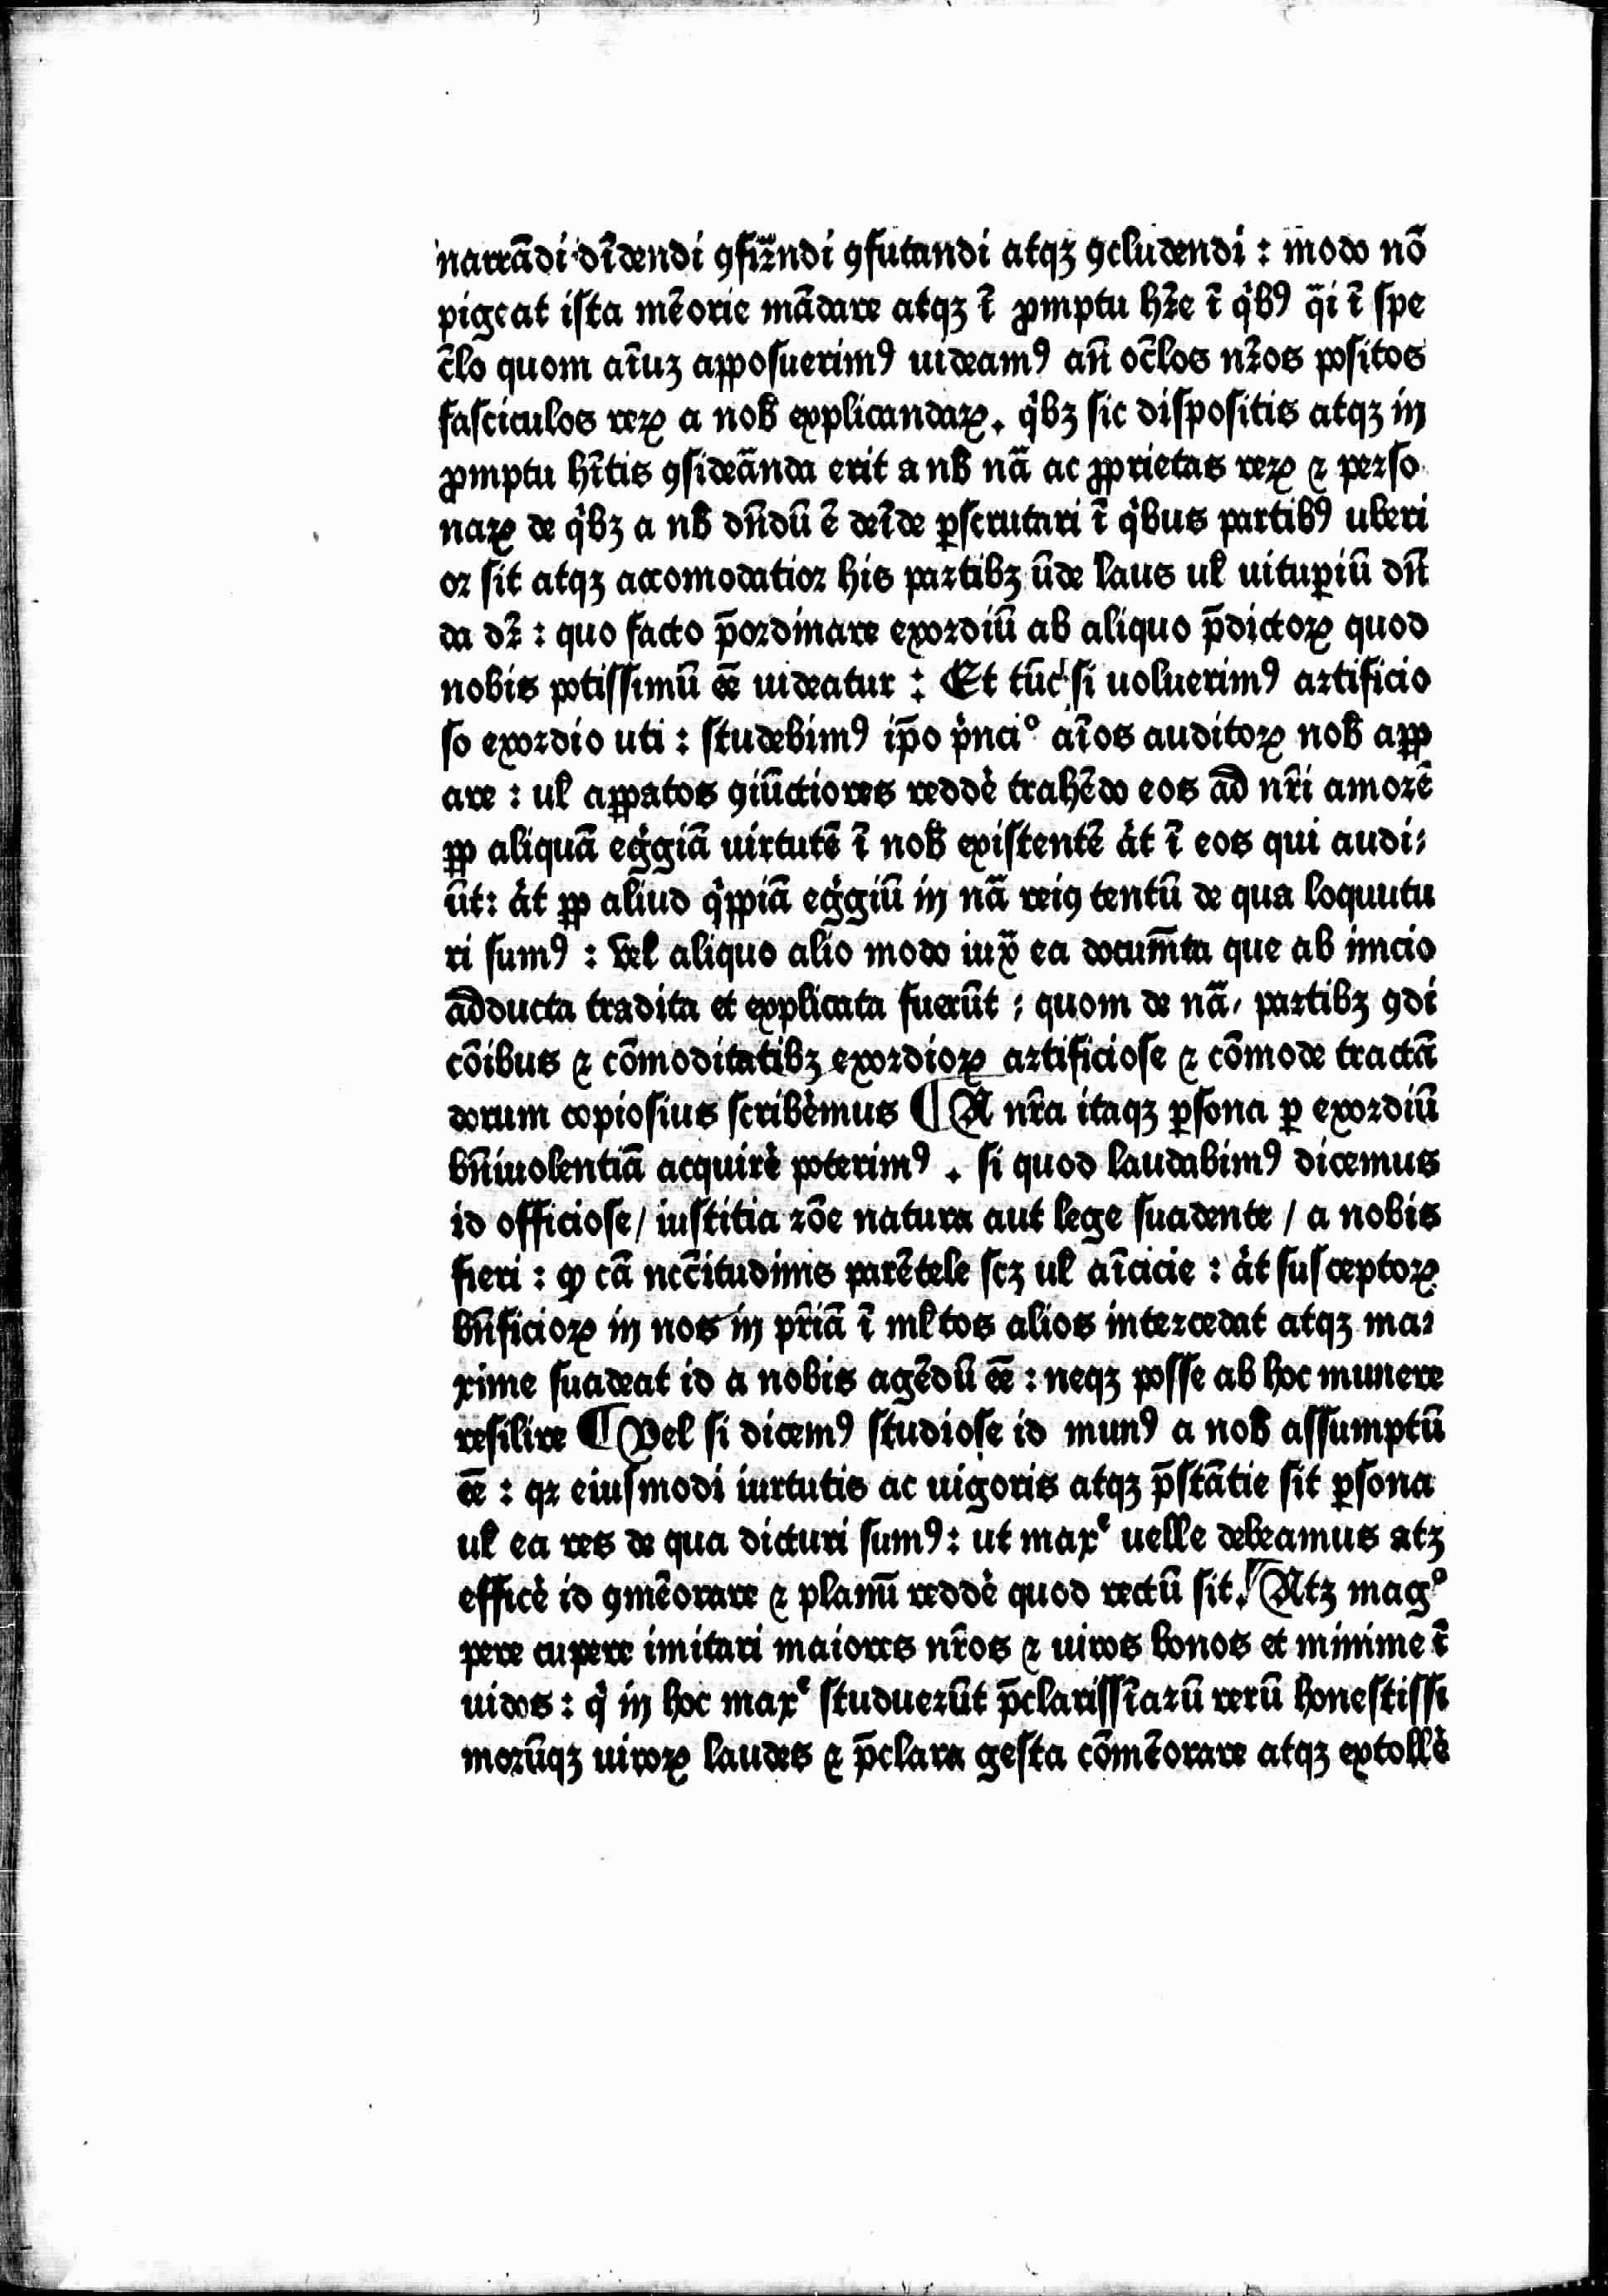 narrãdi dĩdendi ꝯfirᷓndi ꝯfutandi atqꝫ ꝯcludendi : modo nõ
pigeat ista mẽorie mãdare atqꝫ ĩ ꝓmptu hr̃e ĩ qͥbꝰ qᷓi ĩ spe
c̃lo quom aĩuꝫ apposuerimꝰ uideamꝰ añ oc̃los nr̃os positos
fasciculos reꝝ a nob̃ explicandaꝝ. qͥbꝫ sic dispositis atqꝫ in
ꝓmptu hñtis ꝯsideãnda erit a nb̃ nã ac ꝓprietas reꝝ ⁊ perso
naꝝ de qͥbꝫ a nb̃ dñdũ ẽ deĩde ꝑscrutari ĩ qͥbus partibꝰ uberi
or sit atqꝫ accomodatior his partibꝫ ũde laus uł uituꝑiũ dñ
da dr̃ : quo facto p̃ordinare exordiũ ab aliquo p̃dictoꝝ quod
nobis potissimũ eẽ uideatur : Et tũc si uoluerimꝰ artificio
so exordio uti : studebimꝰ ip̃o pͥnciᵒ aĩos auditoꝝ nob̃ aꝓp
are : uł aꝓpatos ꝯiũctiores reddè trahẽdo eos ad nr̃i amorẽ
ꝓp aliquã egͥgiã uirtutẽ ĩ nob̃ existentẽ aͧt ĩ eos qui audi-
ũt: aͧt ꝓp aliud qͥppiã egͥgiũ in nã reiꝯ tentũ de qua loquutu
ri sumꝰ : Vel aliquo alio modo iuxᷓ ea docum̃ta que ab inicio
adducta tradita et explicata fuerũt : quom de nã, partibꝫ ꝯdi
cõibus ⁊ cõmoditatibꝫ exordioꝝ artificiose ⁊ cõmode tractã
dorum copiosius scribèmus ¶ A nr̃a itaqꝫ ꝑsona ꝑ exordiũ
bñiuolentiã acquirè poterimꝰ . si quod laudabimꝰ dicemus
id officiose / iustitia rõe natura aut lege suadente / a nobis
fieri : ꝙ cã ncc̃itudinis parẽtele scꝫ uł aĩcicie : aͧt susceptoꝝ
bñficioꝝ in nos in pr̃iã ĩ młtos alios intercedat atqꝫ ma-
xime suadeat id a nobis agẽdũ eẽ : neqꝫ posse ab hoc munere
resilire ¶ Vel si dicemꝰ studiose id munꝰ a nob̃ assumptũ
eẽ : qꝛ eiusmodi iurtutis ac uigoris atqꝫ p̃stãtie sit ꝑsona
uł ea res de qua dicturi sumꝰ: ut maxᵉ uelle debeamus atꝫ
efficè id ꝯmẽorare ⁊ planũ reddè quod rectũ sit. Atꝫ magᵒ
pere cupere imitari maiores nr̃os ⁊ uiros bonos et minime ĩ
uidos : qͥ in hoc maxᵉ studuerũt p̃clarissĩarũ rerũ honestissi
morũqꝫ uiroꝝ laudes ⁊ p̃clara gesta cõmẽorare atqꝫ extollè